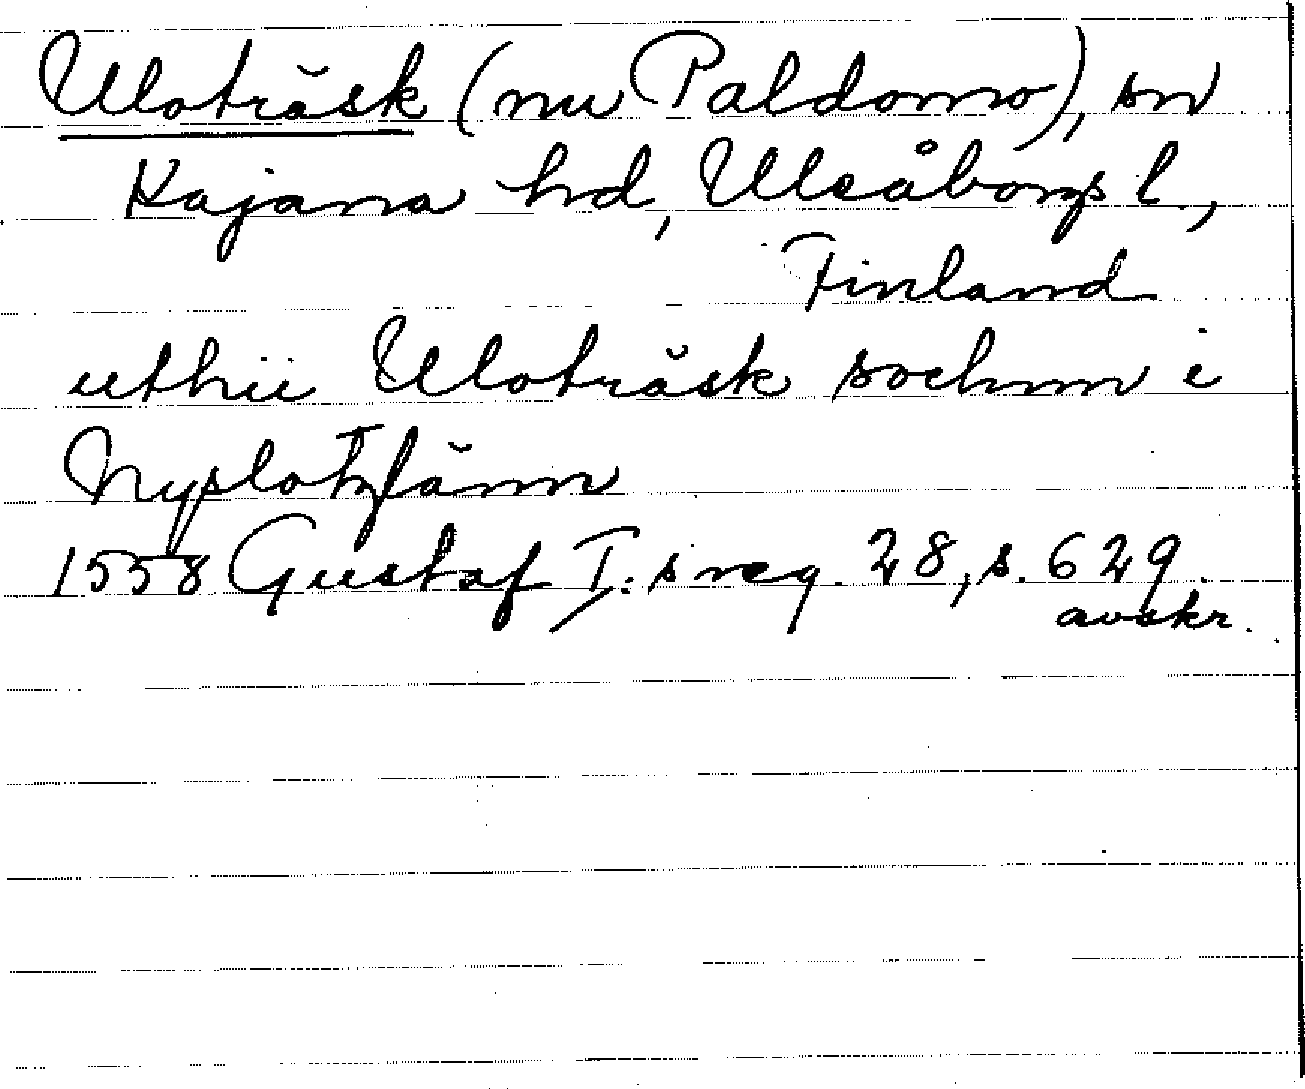 Uloträsk (nu Paldomo), sn
Kajana hd, Uleåborgs l.,
Finland
uthii Uloträsk sochnn i
Nyslotzlänn
1558 Gustaf I:s reg. 28, s. 629.
avskr.